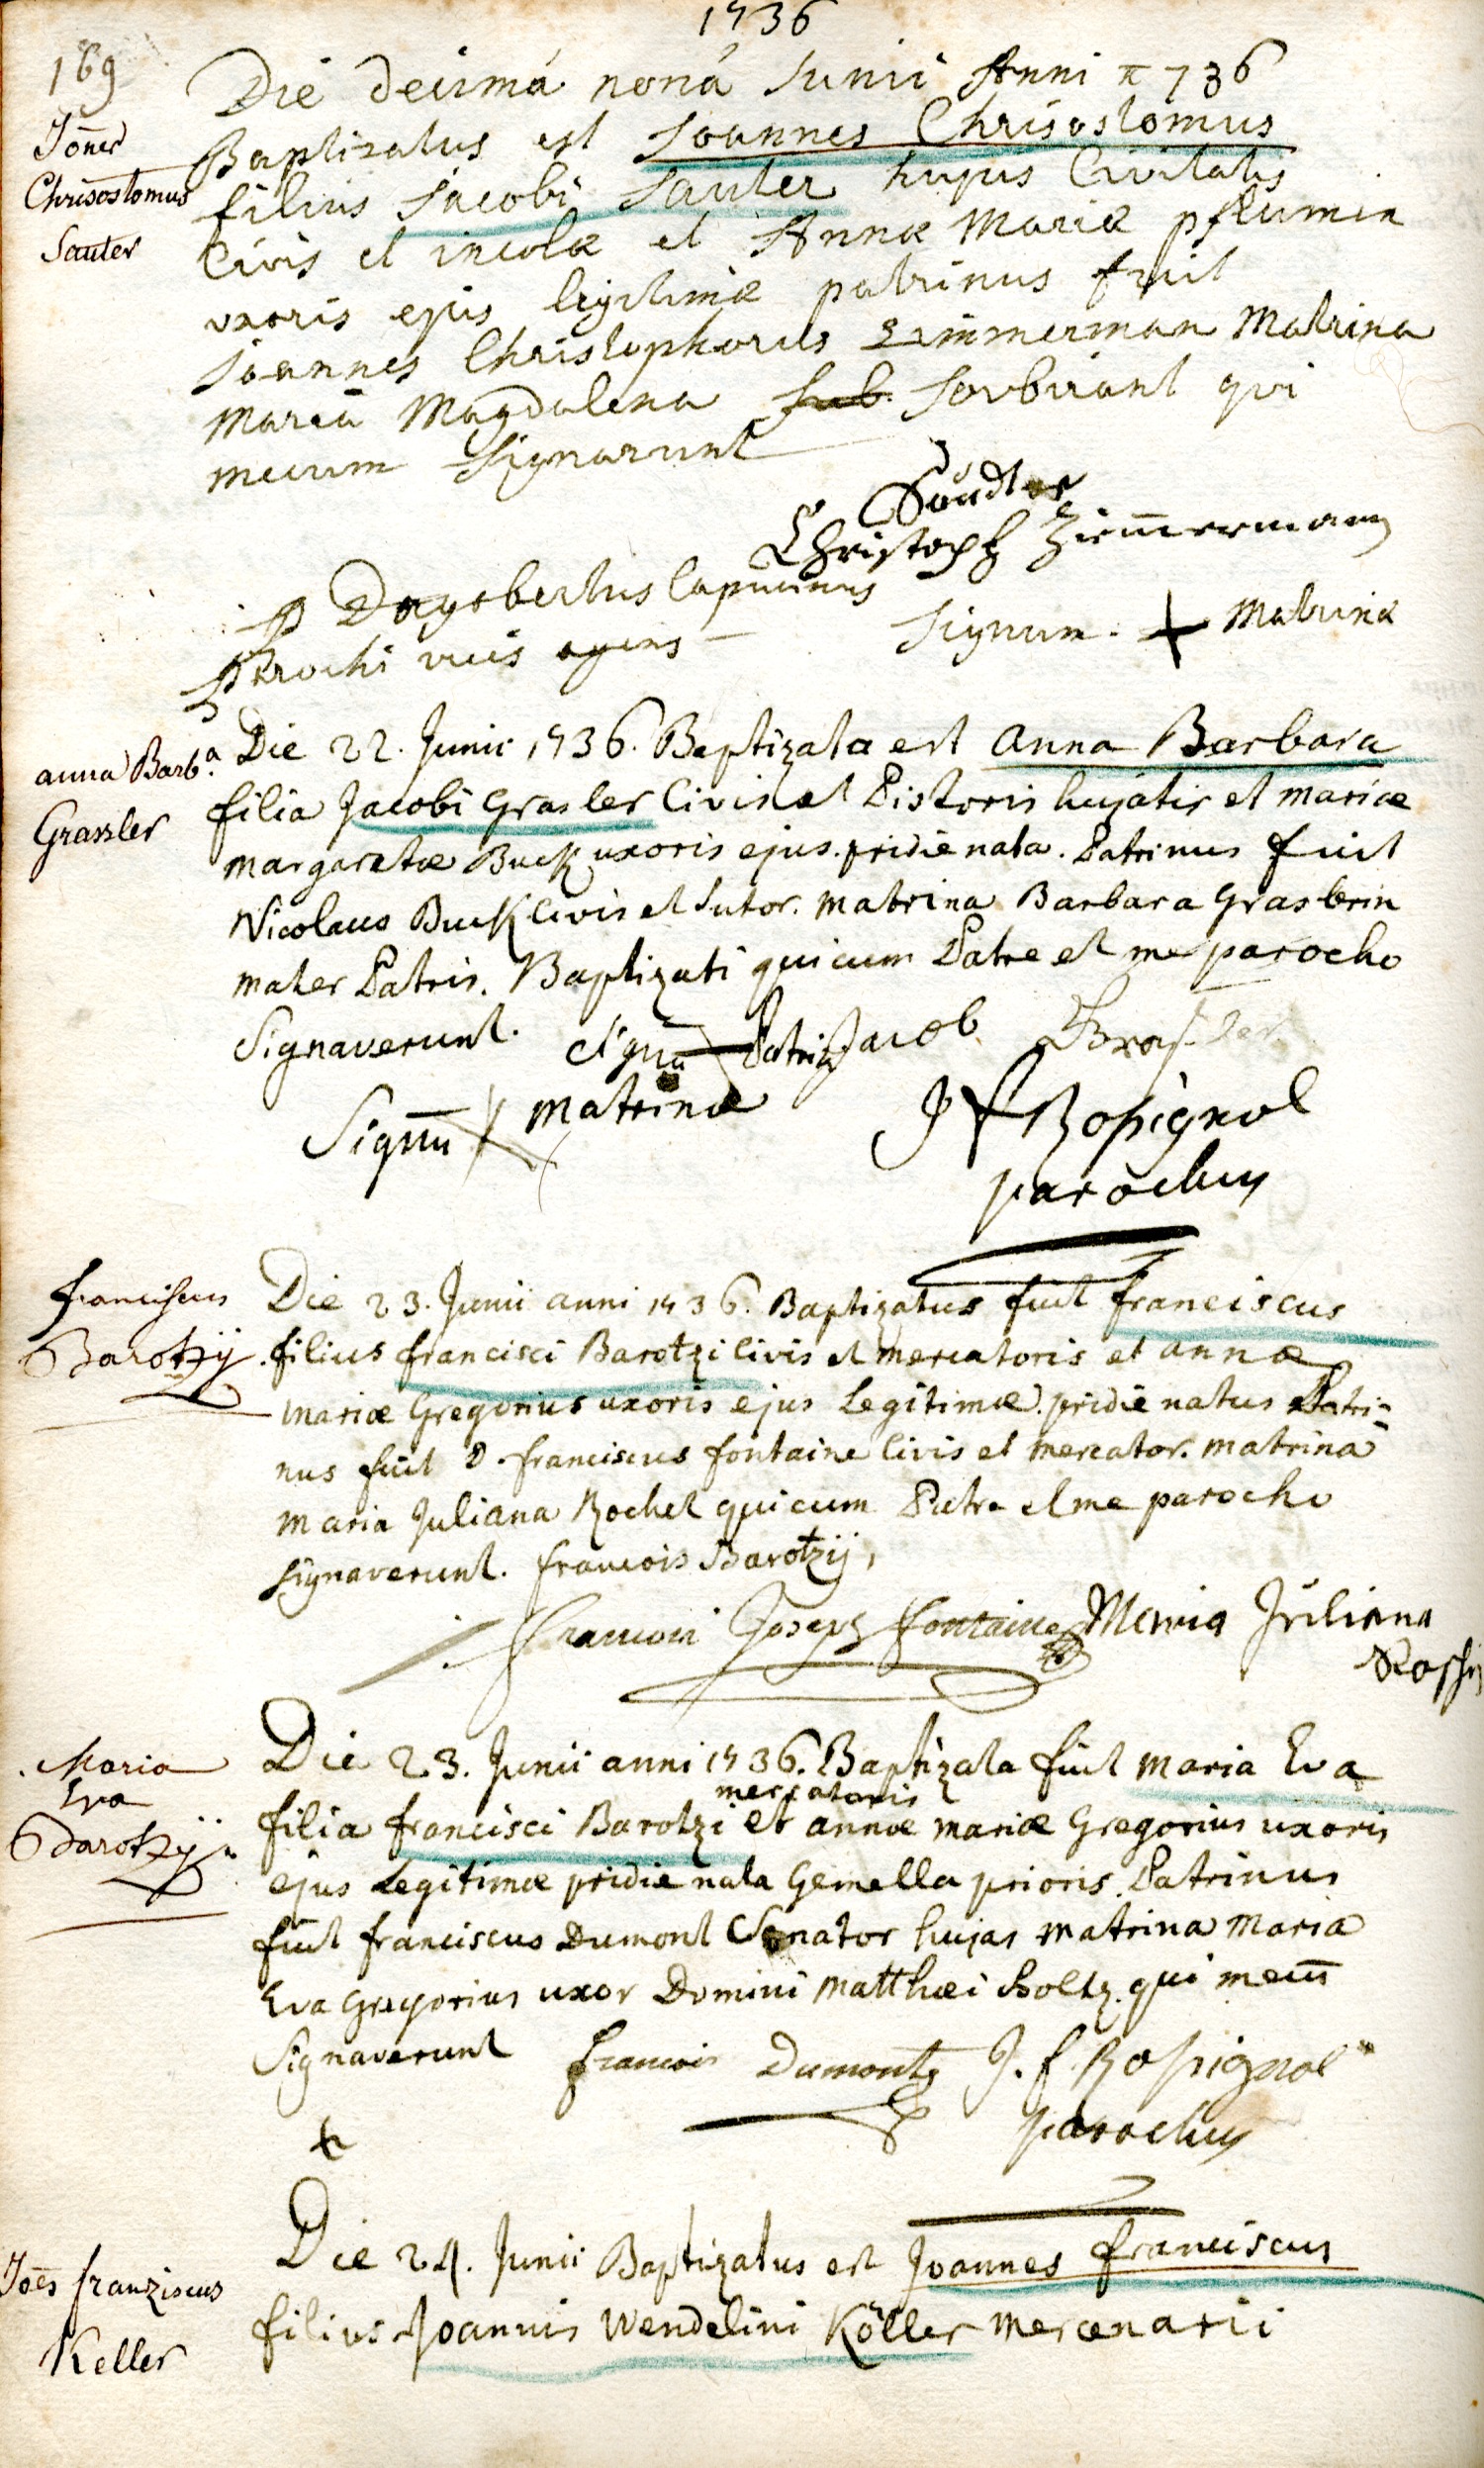 1736
169
Die decima nona Junii Anni 1736
Joñes
Chrisostomus
Sauter
Baptizatus est Joannes Chrisostomus
filius Jacobi Sauter hujus Civitatis
Civis et incolæ et Annæ Mariæ pflumin
uxoris ejus legitimæ patrinus fuit
Joannes Christophorus Zimmerman Matrina
Maria Magdalena Sorbriant qui
mecum signarunt
Christoph Zimmermann
P Dagobertus Capucinus
Signum + Matrinæ
Parochi vices agens
anna Barb.a
Grassler
Die 22. Junii 1736. Baptizata est Anna Barbara
filia Jacobi Grasler Civis et Pistoris hujatis et mariæ
margaretæ Buck uxoris ejus. pridie nata. Patrinus fuit
Nicolaus Buck Civis et Sutor. matrina Barbara Graslerin
mater Patris. Baptizati qui cum Patre et me parocho
Signaverunt. Signū Patrini Jacob Grasler
Signū + matrinæ
J f Rossignol
parochus
franciscus
Barotzij
Die 23. Junii anni 1736. Baptizatus fuit franciscus
filius francisci Barotzi Civis et mercatoris et annæ
mariæ Gregorius uxoris ejus Legitimæ. pridie natus Patri-
nus fuit D. franciscus fontaine Civis et mercator. matrina
maria Juliana Rochel qui cum Patre et me parocho
signaverunt. francois Barotzij,
francoi Joseph fontaine Maria Juliana
Maria
Eva
Barotzij
Die 23. Junii anni 1736. Baptizata fuit maria Eva
mercatoris
filia francisci Barotzi et annæ mariæ Gregorius uxoris
ejus Legitimæ pridie nata Gemella prioris. Patrinus
fuit franciscus Dumont Senator hujas matrina maria
Eva Gregorius uxor Domini matthæi Scholtz. qui mecū
Signaverunt francois Dumont J. f. Rossignol
+ parochus
Joēs franziscus
Keller
Die 24. Junii Baptizatus est Joannes franciscus
filius Joannis Wendelini Köller mercenarii